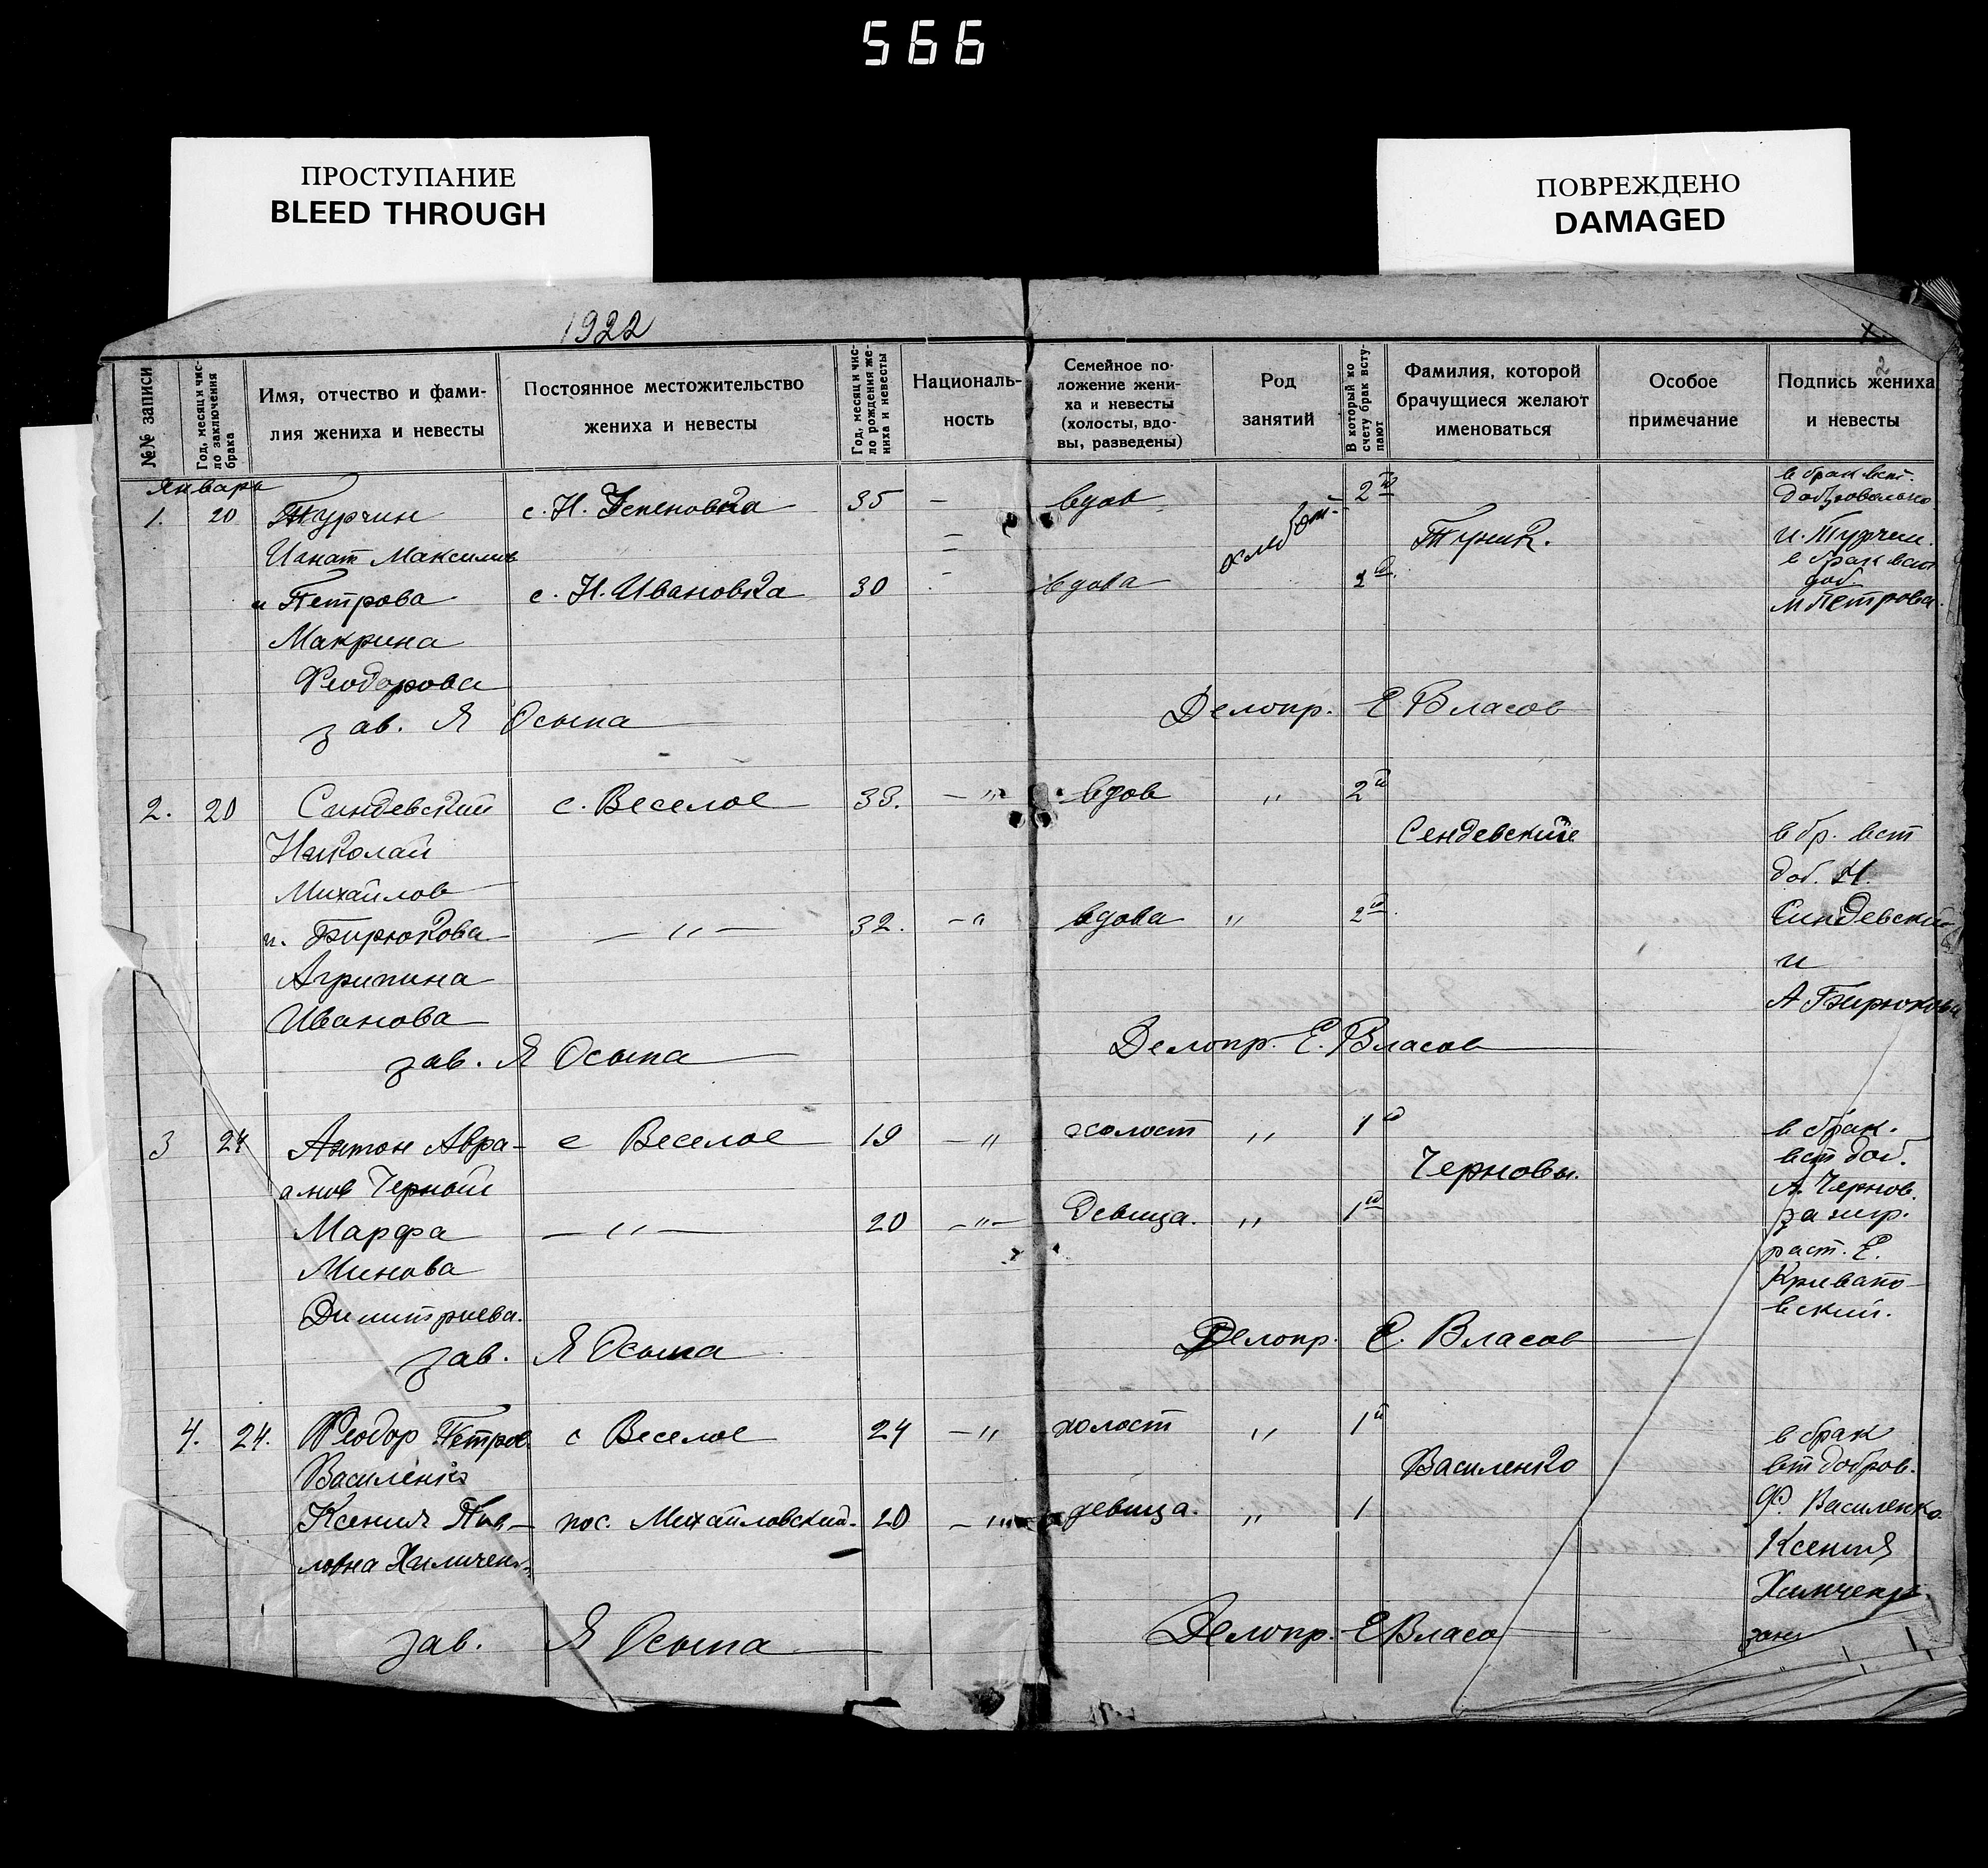 566
ПРОСТУПАНИЕ
BLEED THROUGH
ПОВРЕЖДЕНО
DAMAGED
1922
2
№№ записи
Год, месяц и чис-
ло заключения
брака
Имя, отчество и фами-
лия жениха и невесты
Постоянное местожительство
жениха и невесты
Год, месяц и чис-
ло рождения же-
ниха и невесты
Националь-
ность
Семейное по-
ложение жени-
ха и невесты
(холосты, вдо-
вы, разведены)
Род
занятий
В который по
счету брак всту-
пают
Фамилия, которой
брачущиеся желают
именоваться
Особое
примечание
Подпись жениха
и невесты
Январь
1. 20 Турчин с. Н. Успеновка 35 — вдов хлебоп. 2й
Игнат Максимов
и Петрова с. Н. Ивановка 30 вдова 2й
Макрина
Феодорова
в брак вст.
Добровольно
И. Турчин.
в брак вст
доб
М Петрова.
зав. Я Осыпа Делопр. Е Власов
2. 20 Синдевский с. Веселое 33. — " вдов " 2й
Николай Сендевские
Михайлов
и. Бирюкова — " — 32. — " вдова " 2й
Агрипина
Иванова
в бр. вст
доб. Н.
Синдевский
и
А Бирюкова
зав. Я Осыпа Делопр. Е. Власов
3 24 Антон Авра- с Веселое 19 — " холост " 1й
амов Черный Черновы.
Марфа — " — 20 — " — девица. " 1й
Минова
Димитриева.
в брак.
вст доб.
А. Чернов.
за негр.
раст. Е.
Кривато-
вский.
зав. Я Осыпа Делопр. Е. Власов
4. 24. Феодор Петров с Веселое 24 — " холост " 1й
Василенко Василенко
Ксения Пав- пос. Михайловский. 20 — " девица. " 1
ловна
в брак
вст добров.
Ф. Василенко
Ксения
зав. Я Осыпа Делопр. Е Власо